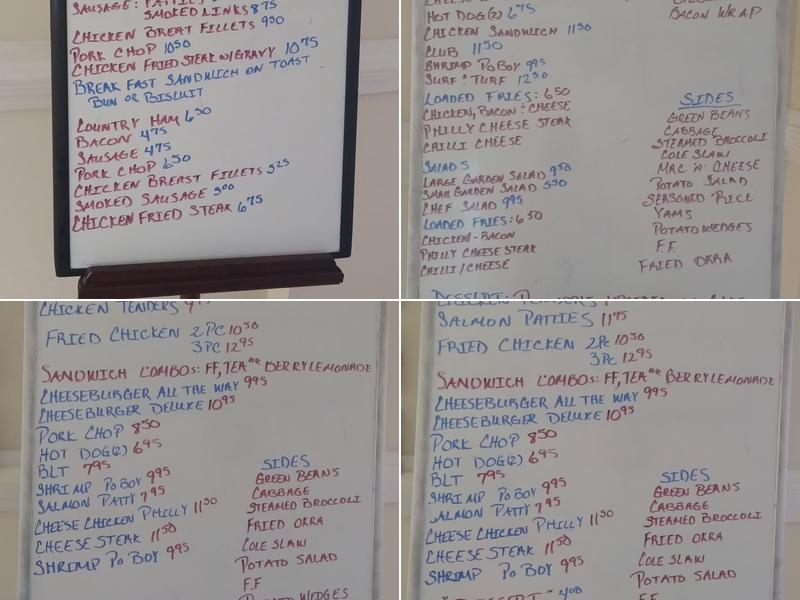 SAUSAGE: PATTIES
SMOKED LINKS 8 75
CHICKEN BREAT FILLETS 9 50
PORK CHOP 10 50
CHICKEN FRIED STEAK W/GRAVY 10 75
BREAK FAST SANDWICH ON TOAST
BUN OR BISCUIT
COUNTRY HAM 6 50
BACON 4 75
SAUSAGE 4 75
PORK CHOP 6 50
CHICKEN BREAST FILLETS 5 25
SMOKED SAUSAGE 5 00
CHICKEN FRIED STEAK 6 75
HOT DOG(2) 6 75
CHICKEN SANDWICH 11 50
CLUB 11 50
SHRIMP PO BOY 9 95
SURF : TURF 12 50
LOADED FRIES: 6 50
CHICKEN, BACON : CHEESE
PHILLY CHEESE STEAK
CHILLI CHEESE
SALADS
LARGE GARDEN SALAD 9 50
SMALL GARDEN SALAD 5 50
CHEF SALAD 9 95
LOADED FRIES: 6 50
CHICKEN - BACON
PHILLY CHEESE STEAK
CHILLI / CHEESE
BACON WRAP
SIDES
GREEN BEANS
CABBAGE
STEAMED BROCOLLI
COLE SLAW
MAC N' CHEESE
POTATO SALAD
SEASONED RICE
YAMS
POTATO WEDGES
F.F.
FRIED OKRA
CHICKEN TENDERS
FRIED CHICKEN 2 PC 10 50
3 PC 12 95
SANDWICH COMBOS: FF, TEA OR BERRY LEMONADE
CHEESEBURGER ALL THE WAY 9 95
CHEESEBURGER DELUXE 10 95
PORK CHOP 8 50
HOT DOG(2) 6 95
BLT 7 95
SHRIMP PO BOY 9 95
SALMON PATTY 7 95
CHEESE CHICKEN PHILLY 11 50
CHEESE STEAK 11 50
SHRIMP PO BOY 9 95
SIDES
GREEN BEANS
CABBAGE
STEAMED BROCOLLI
FRIED OKRA
COLE SLAW
POTATO SALAD
F.F.
POTATO WEDGES
SALMON PATTIES 11 95
FRIED CHICKEN 2 PC 10 50
3 PC 12 95
SANDWICH COMBOS: FF, TEA OR BERRY LEMONADE
CHEESEBURGER ALL THE WAY 9 95
CHEESEBURGER DELUXE 10 95
PORK CHOP 8 50
HOT DOG(2) 6 95
BLT 7 95
SHRIMP PO BOY 9 95
SALMON PATTY 7 95
CHEESE CHICKEN PHILLY 11 50
CHEESE STEAK 11 50
SHRIMP PO BOY 9 95
"DESSERT" 4 00
SIDES
GREEN BEANS
CABBAGE
STEAMED BROCOLLI
FRIED OKRA
COLE SLAW
POTATO SALAD
F.F.